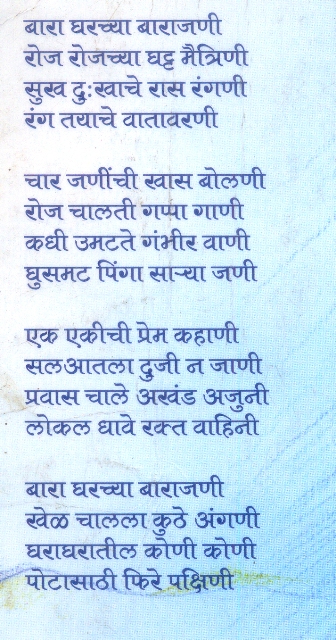 बारा घरच्या बाराजणी
रोज रोजच्या घट्ट मैत्रिणी
सुख दुःखाचे रास रंगणी
रंग तयाचे वातावरणी
चार जणींची खास बोलणी
रोज चालती गप्पा गाणी
कधी उमटते गंभीर वाणी
घुसमट पिंगा साऱ्या जणी
एक एकीची प्रेम कहाणी
सलआतला दुजी न जाणी
प्रवास चाले अखंड अजुनी
लोकल धावे रक्त वाहिनी
बारा घरच्या बाराजणी
खेळ चालला कुठे अंगणी
घराघरातील कोणी कोणी
पोटासाठी फिरे पक्षिणी